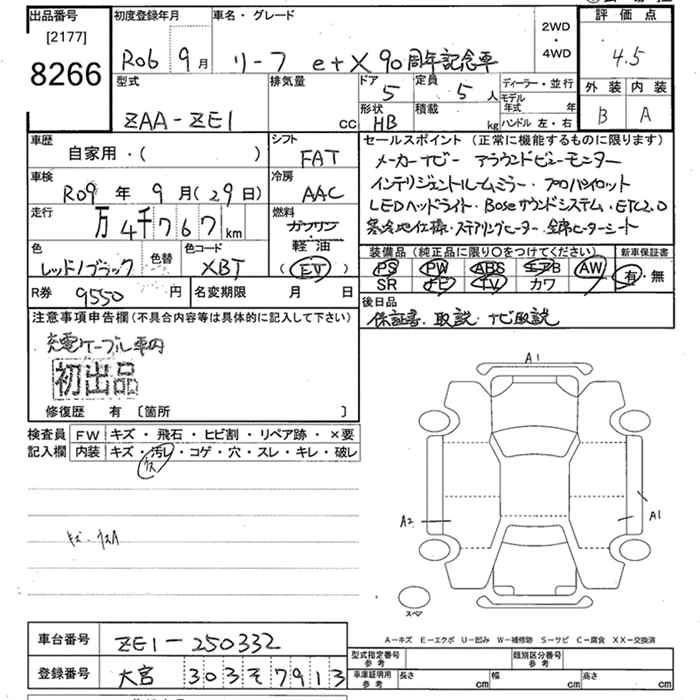 出品番号 初度登録年月 車名・グレード 2WD ・ 4WD 評価点
[2177]
8266
R06 9月 リーフ e+X 90周年記念車 4.5
型式 排気量 ドア 定員 ディーラー・並行
ZAA-ZE1 cc 5 5人 モデル年式 年
形状 積載 ハンドル 左・右
HB kg
外装 内装
B A
車歴 シフト
自家用・( ) FAT
車検 冷房
R09年9月(29日) AAC
走行 燃料
万4千767km ガソリン
軽油
(EV)
色 色替 色コード
レッド/ブラック XBJ
R券 9550円 名変期限 月 日
セールスポイント(正常に機能するものに限ります)
メーカーナビー アラウンドビューモニター
インテリジェントルームミラー・プロパイロット
LEDヘッドライト・Boseサウンドシステム・ETC2.0
寒冷地仕様・ステアリングヒーター・全席ヒーターシート
装備品(純正品に限り○をつけてください) 新車保証書
PS PW ABS エアB AW 有・無
SR ナビ TV カワ
後日品
保証書、取説、ナビ取説
注意事項申告欄(不具合内容等は具体的に記入して下さい)
充電ケーブル車内
初出品
修復歴 有 〔箇所 〕
検査員 FW キズ・飛石・ヒビ割・リペア跡・×要
記入欄 内装 キズ・汚レ・コゲ・穴・スレ・キレ・破レ
A1
A2
A1
スペア
A-キズ E-エクボ U-凹み W-補修跡 S-サビ C-腐食 XX-交換済
車台番号 ZE1-250332
登録番号 大宮 303そ7913
型式指定番号 参考 類別区分番号 参考
車庫証明用 参考 長さ cm 幅 cm 高さ cm